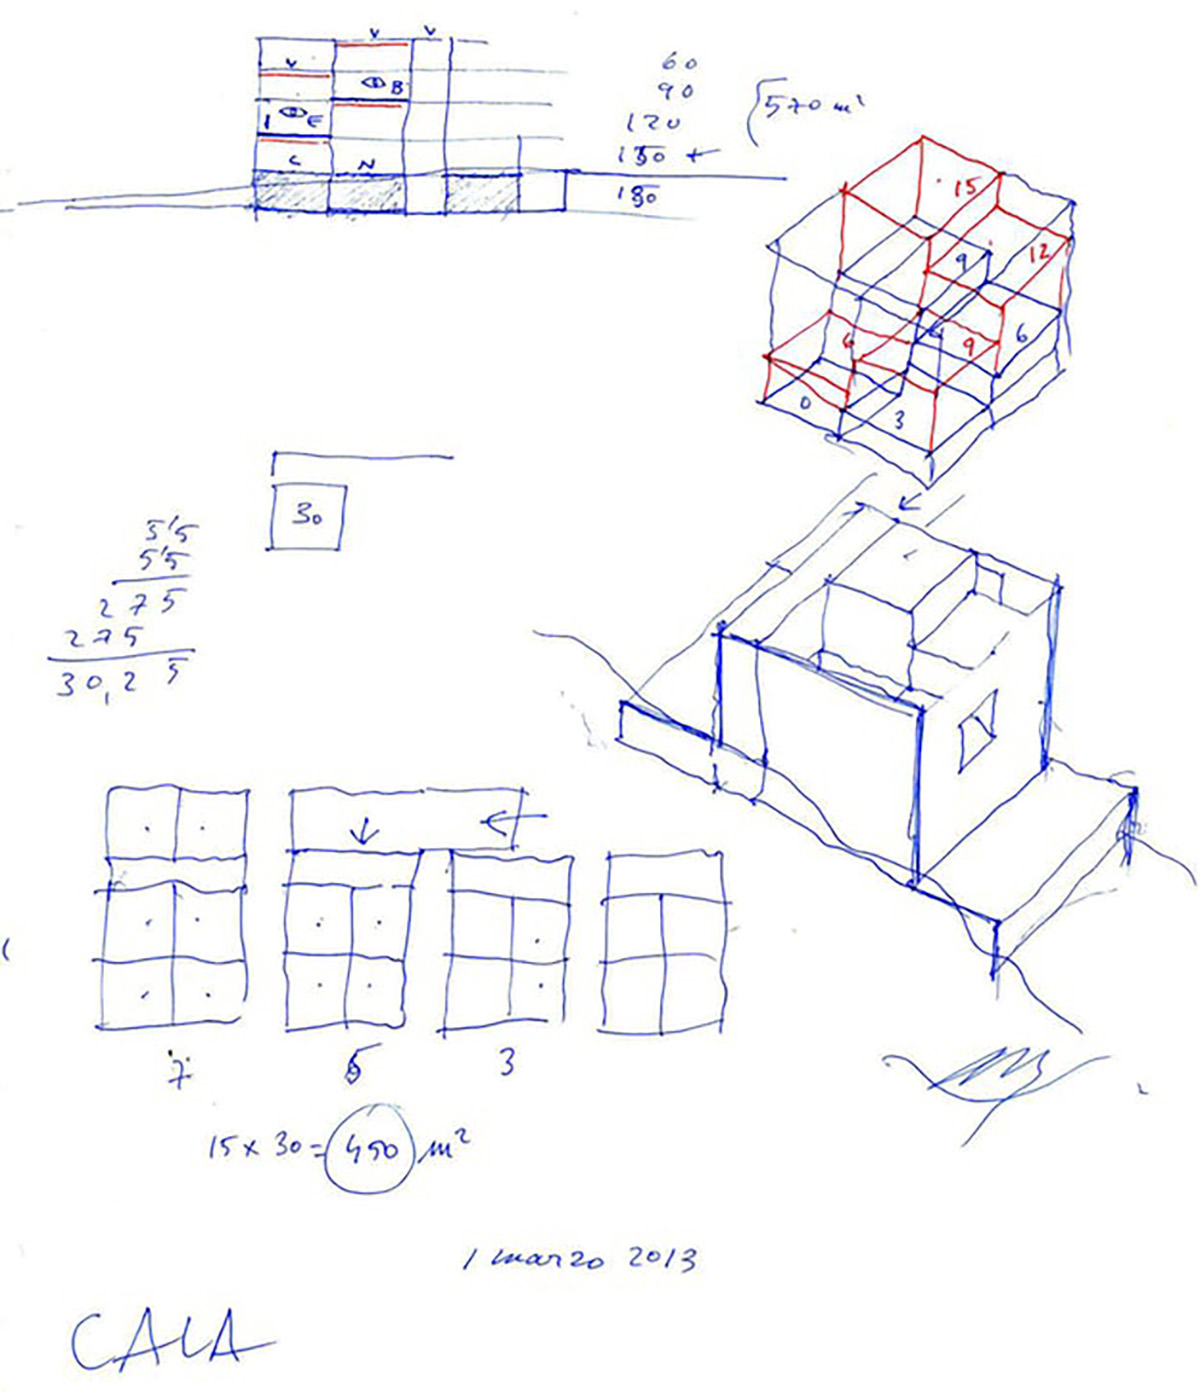 V V
V
B
I E
C N
60
90
120
150 ←
150
570 m²
15
12
9
6
6
9
0
3
30
5'5
5'5
275
275
30,25
7
5
3
15 x 30 = 450 m²
1 marzo 2013
CALA